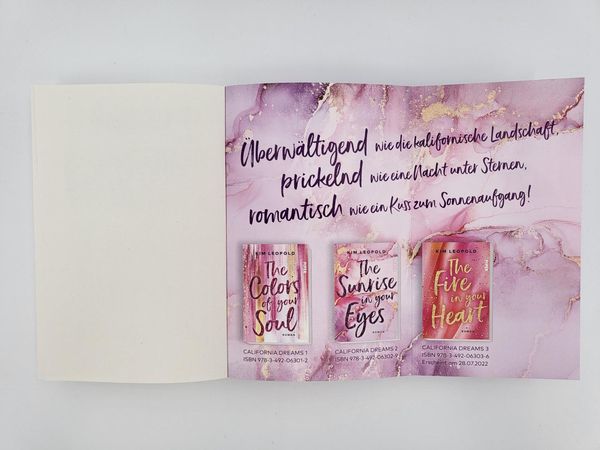 Überwältigend wie die kalifornische Landschaft,
prickelnd wie eine Nacht unter Sternen,
romantisch wie ein Kuss zum Sonnenaufgang!
KIM LEOPOLD
The
Colors
of your
Soul
ROMAN
CALIFORNIA DREAMS 1
ISBN 978-3-492-06301-2
KIM LEOPOLD
The
Sunrise
in your
Eyes
ROMAN
CALIFORNIA DREAMS 2
ISBN 978-3-492-06302-9
KIM LEOPOLD
The
Fire
in your
Heart
ROMAN
CALIFORNIA DREAMS 3
ISBN 978-3-492-06303-6
Erscheint am 28.07.2022